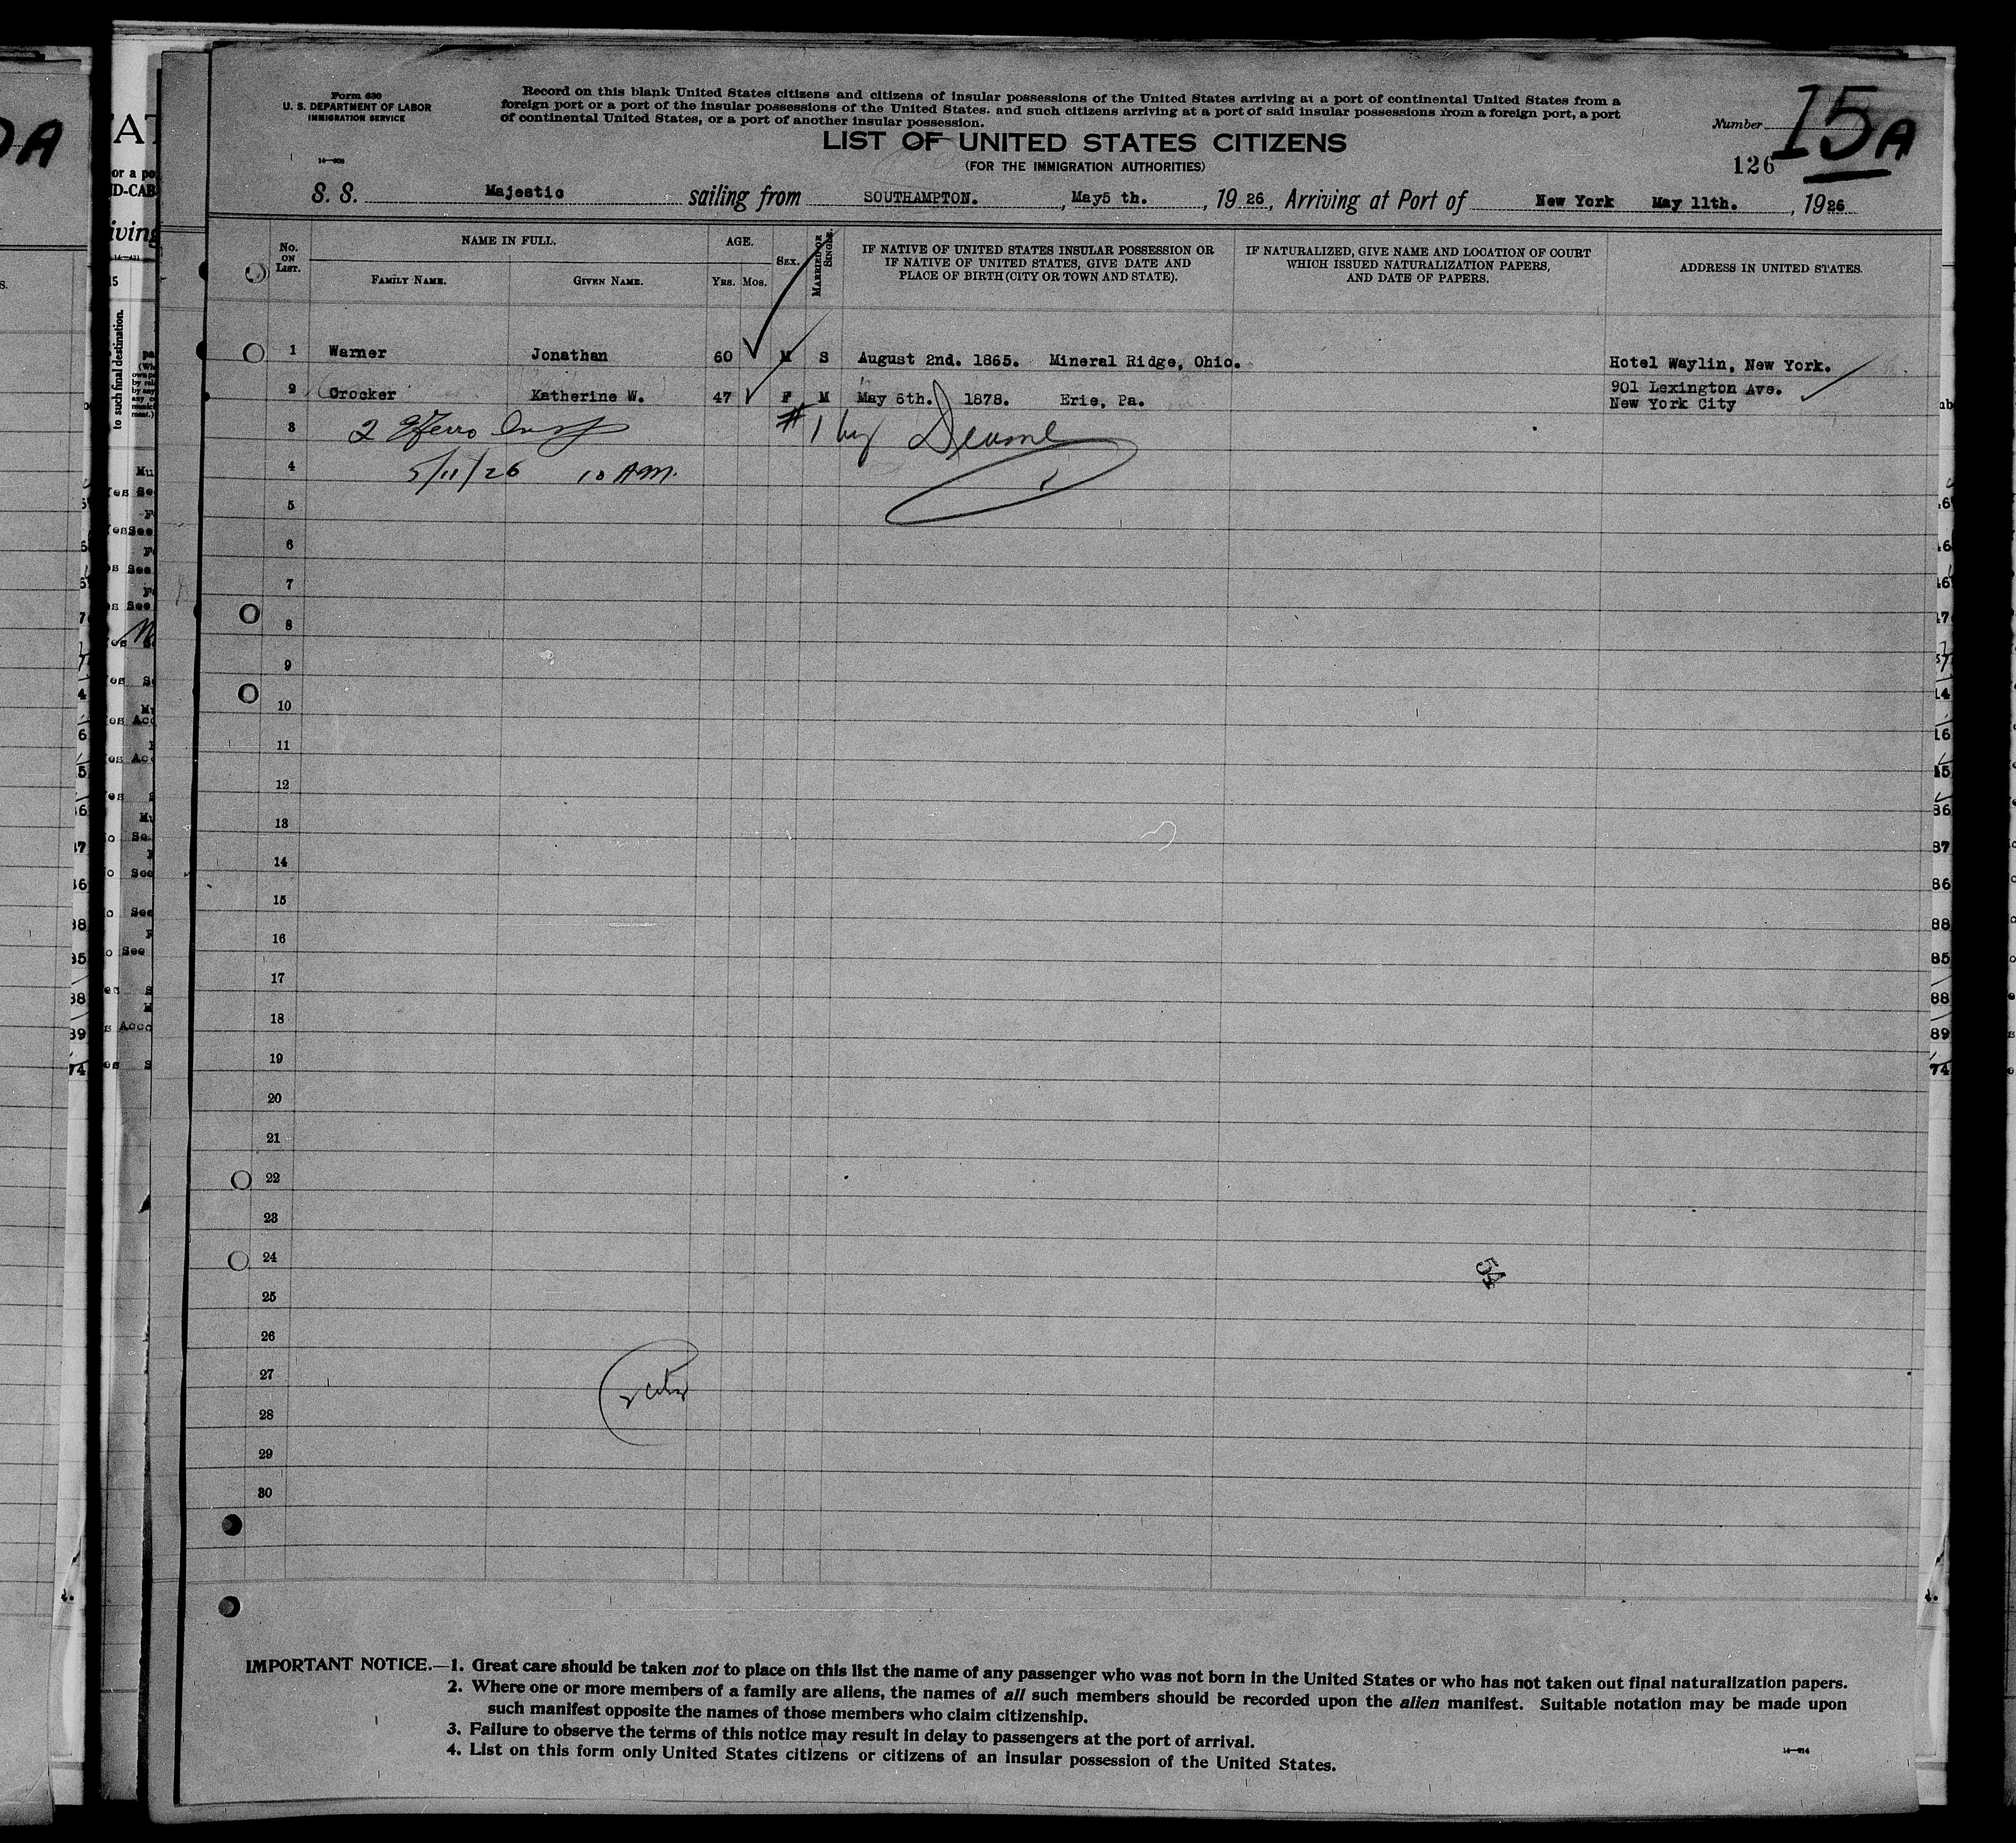 Form 630
U. S. DEPARTMENT OF LABOR
IMMIGRATION SERVICE
Record on this blank United States citizens and citizens of insular possessions of the United States arriving at a port of continental United States from a
foreign port or a port of the insular possessions of the United States. and such citizens arriving at a port of said insular possessions from a foreign port, a port
of continental United States, or a port of another insular possession.
LIST OF UNITED STATES CITIZENS
(FOR THE IMMIGRATION AUTHORITIES)
Number 15A
126
S. S. Majestic sailing from SOUTHAMPTON. , May5 th. , 19 26, Arriving at Port of New York May 11th. , 1926
No. ON LIST.
NAME IN FULL.
FAMILY NAME. GIVEN NAME.
AGE.
YRS. MOS.
SEX.
MARRIED OR SINGLE.
IF NATIVE OF UNITED STATES INSULAR POSSESSION OR
IF NATIVE OF UNITED STATES, GIVE DATE AND
PLACE OF BIRTH (CITY OR TOWN AND STATE).
IF NATURALIZED, GIVE NAME AND LOCATION OF COURT
WHICH ISSUED NATURALIZATION PAPERS,
AND DATE OF PAPERS.
ADDRESS IN UNITED STATES.
1 Warner Jonathan 60 M S August 2nd. 1865. Mineral Ridge, Ohio. Hotel Waylin, New York.
2 Crocker Katherine W. 47 F M May 6th. 1878. Erie, Pa. 901 Lexington Ave.
New York City
3 2 #1 by
4 5/11/26 10 AM.
5
6
7
8
9
10
11
12
13
14
15
16
17
18
19
20
21
22
23
24
54
25
26
27
28
29
30
IMPORTANT NOTICE.—1. Great care should be taken not to place on this list the name of any passenger who was not born in the United States or who has not taken out final naturalization papers.
2. Where one or more members of a family are aliens, the names of all such members should be recorded upon the alien manifest. Suitable notation may be made upon
such manifest opposite the names of those members who claim citizenship.
3. Failure to observe the terms of this notice may result in delay to passengers at the port of arrival.
4. List on this form only United States citizens or citizens of an insular possession of the United States.